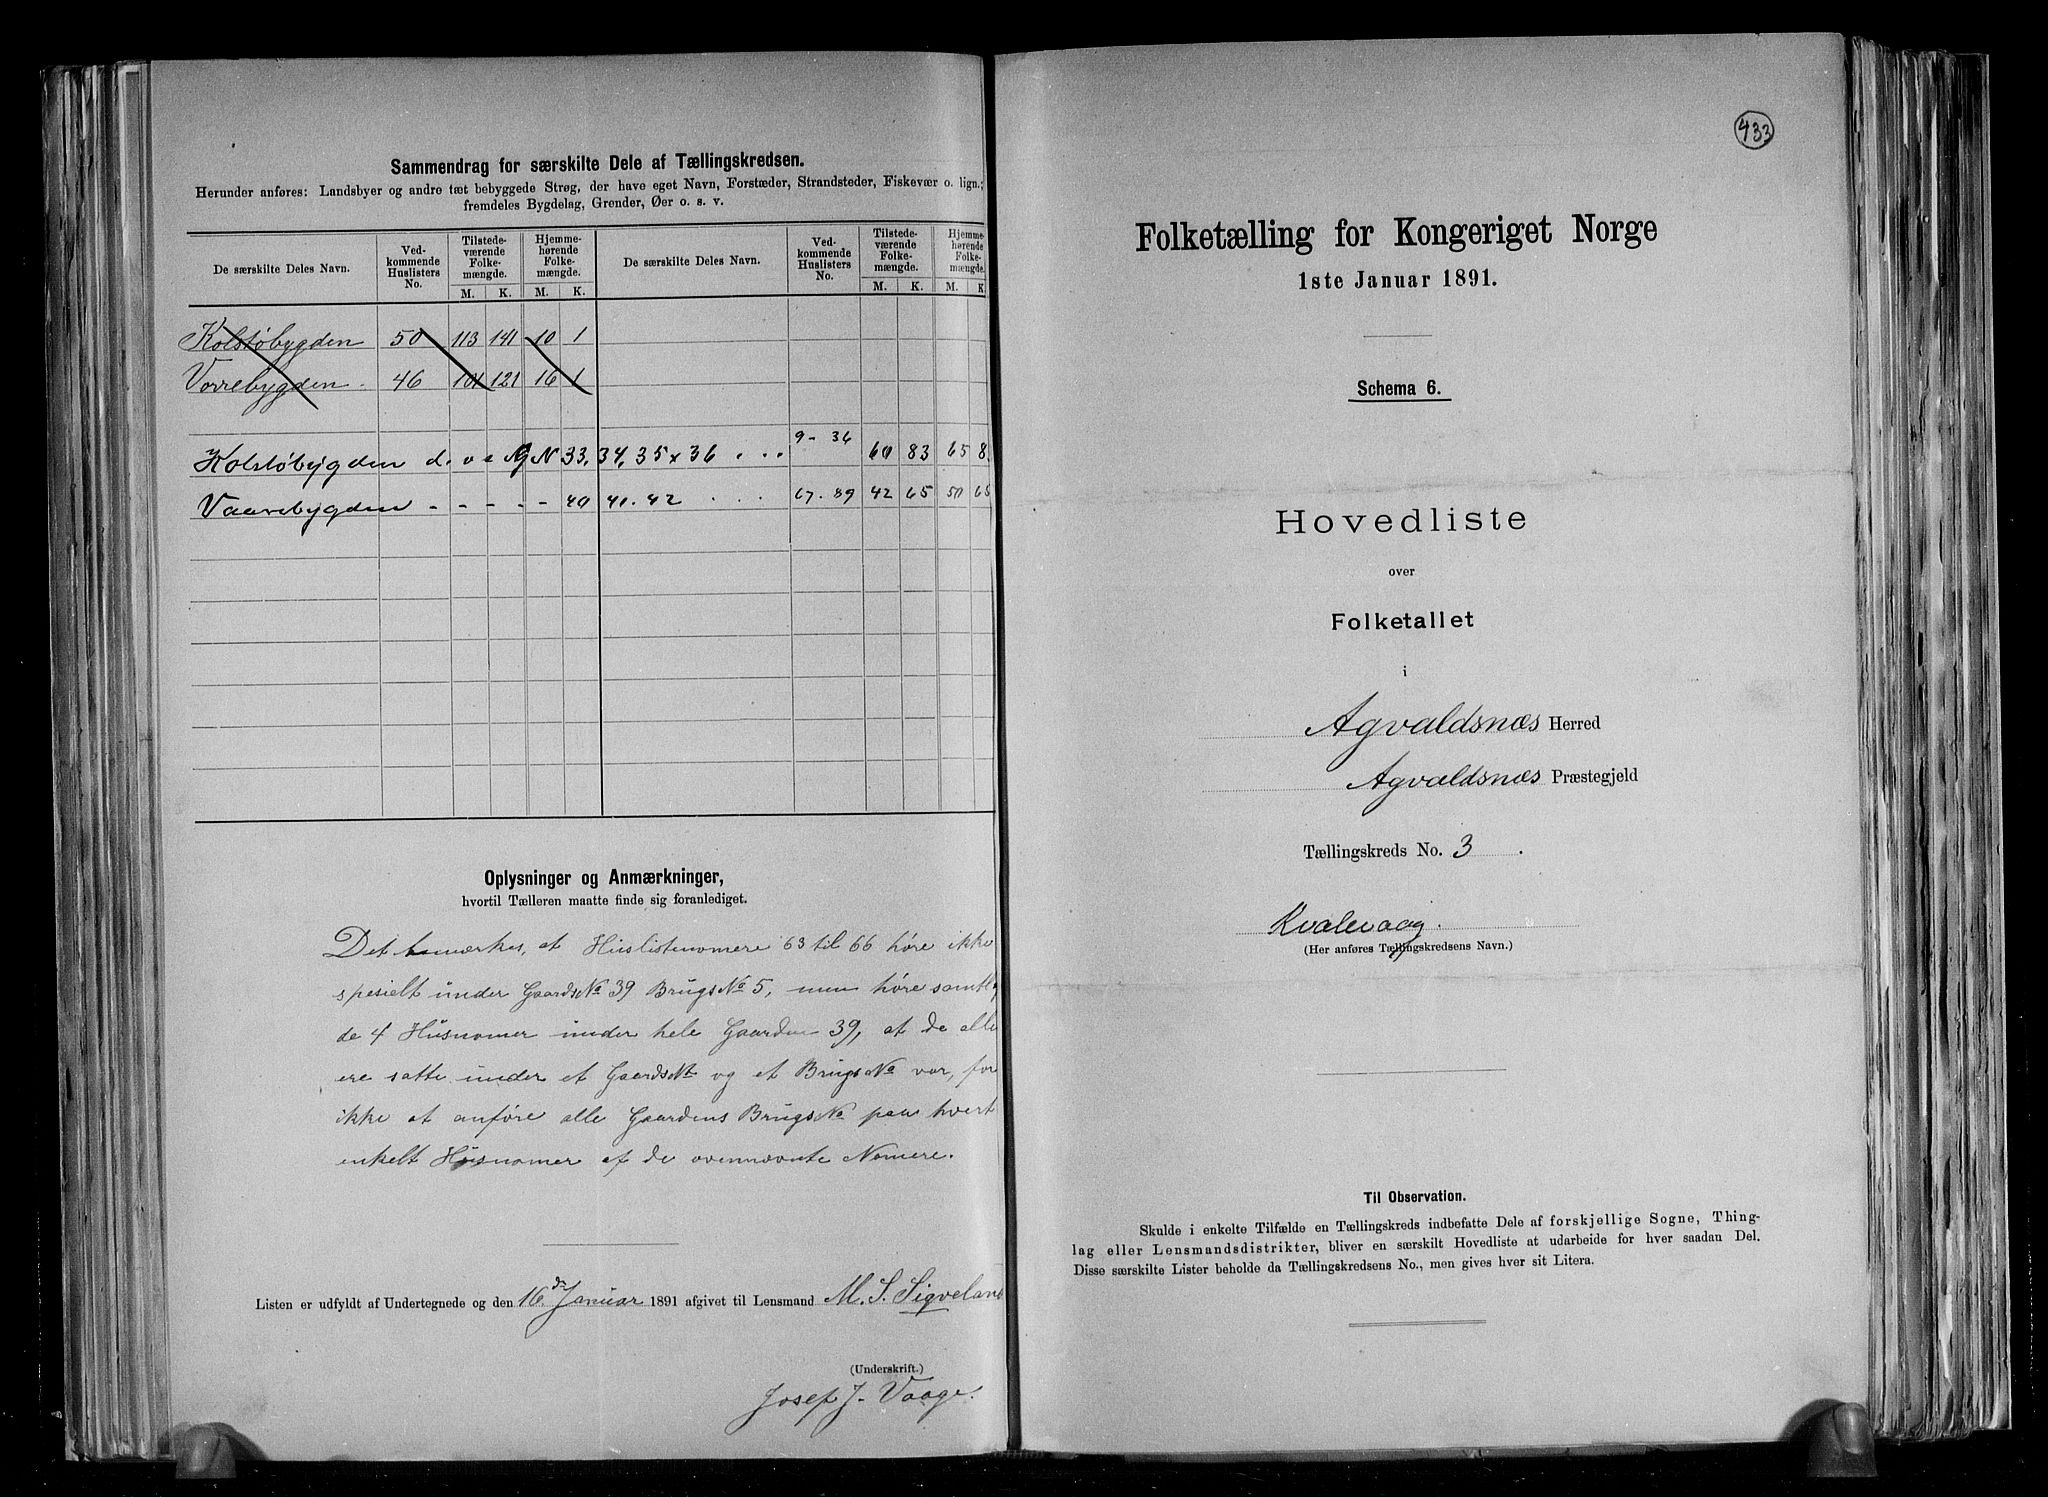 Sammendrag for særskilte Dele af Tællingskredsen.
Herunder anføres: Landsbyer og andre tæt bebyggede Strøg, der have eget Navn, Forstæder, Strandsteder, Fiskevær o. lign.;
fremdeles Bygdelag, Grender, Øer o. s. v.
De særskilte Deles Navn. Ved-kommende Huslisters No. Tilstede-værende Folke-mængde. Hjemme-hørende Folke-mængde. De særskilte Deles Navn. Ved-kommende Huslisters No. Tilstede-værende Folke-mængde. Hjemme-hørende Folke-mængde.
M. K. M. K. M. K. M. K.
Kolstøbygden 50 113 141 10 1
Vorrebygden 46 101 121 16 1
Kolstøbygden d. v. s. G N 33, 34, 35 x 36 . . . 9 - 36 60 83 65 8
Vaarebygden - - - - - 40 41. 42 . . . 67. 89 42 65 50 65
Oplysninger og Anmærkninger,
hvortil Tælleren maatte finde sig foranlediget.
Det bemærkes, at Huslistenomere 63 til 66 høre ikke
spesielt under Gaards No 39 Brugs No 5, men høre samtl
de 4 Husnomer under hele Gaarden 39, at de alle
ere satte under et Gaards No og et Brugs No var, for
ikke at anføre alle Gaardens Brugs No paa hvert
enkelt Husnomer af de ovennævnte Nomere.
Listen er udfyldt af Undertegnede og den 16de Januar 1891 afgivet til Lensmand M. S. Sigveland
(Underskrift.)
Josef J. Vaage.
433
Folketælling for Kongeriget Norge
1ste Januar 1891.
Schema 6.
Hovedliste
over
Folketallet
i
Agvaldsnæs Herred
Agvaldsnæs Præstegjeld
Tællingskreds No. 3.
Kvalevaag.
(Her anføres Tællingskredsens Navn.)
Til Observation.
Skulde i enkelte Tilfælde en Tællingskreds indbefatte Dele af forskjellige Sogne, Thing-
lag eller Lensmandsdistrikter, bliver en særskilt Hovedliste at udarbeide for hver saadan Del.
Disse særskilte Lister beholde da Tællingskredsens No., men gives hver sit Litera.